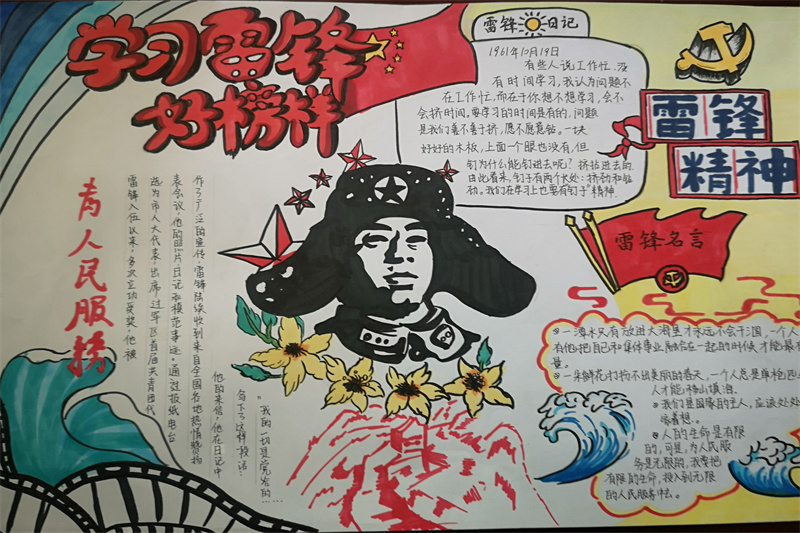 学习雷锋
好榜样
雷锋日记
1961年10月19日
有些人说工作忙,没
有时间学习,我认为问题不
在工作忙,而在于你想不想学习,会不
会挤时间,要学习的时间是有的,问题
是我们善不善于挤,愿不愿意钻,一块
好好的木板,上面一个眼也没有,但
钉为什么能钉进去呢?挤拈进去的.
由此看来,钉子有两个长处:挤劲和钻
劲,我们在学习上也要有钉子"精神.
雷锋
精神
雷锋名言
一滴水只有放进大海里才永远不会干涸,一个人
有他把自己和集体事业融合在一起的时候才能最有
量。
一朵鲜花打扮不出美丽的春天,一个人总是单枪匹
人才能移山填海.
我们是国家的主人,应该处处
着想.
人的生命是有限
的,可是,为人民服
务是无限的,我要把
有限的生命,投入到无限
的人民服务中去。
为人民服务
雷锋入伍以来,多次立功受奖,他被
选为市人大代表,出席过军区首届共青团代
表会议,他的照片,日记和模范事迹,通过报纸电台
作了广泛的宣传,雷锋陆续收到来自全国各地热情赞扬
他的来信,他在日记中
写下了这样一段话:
"我的一切是党给的……